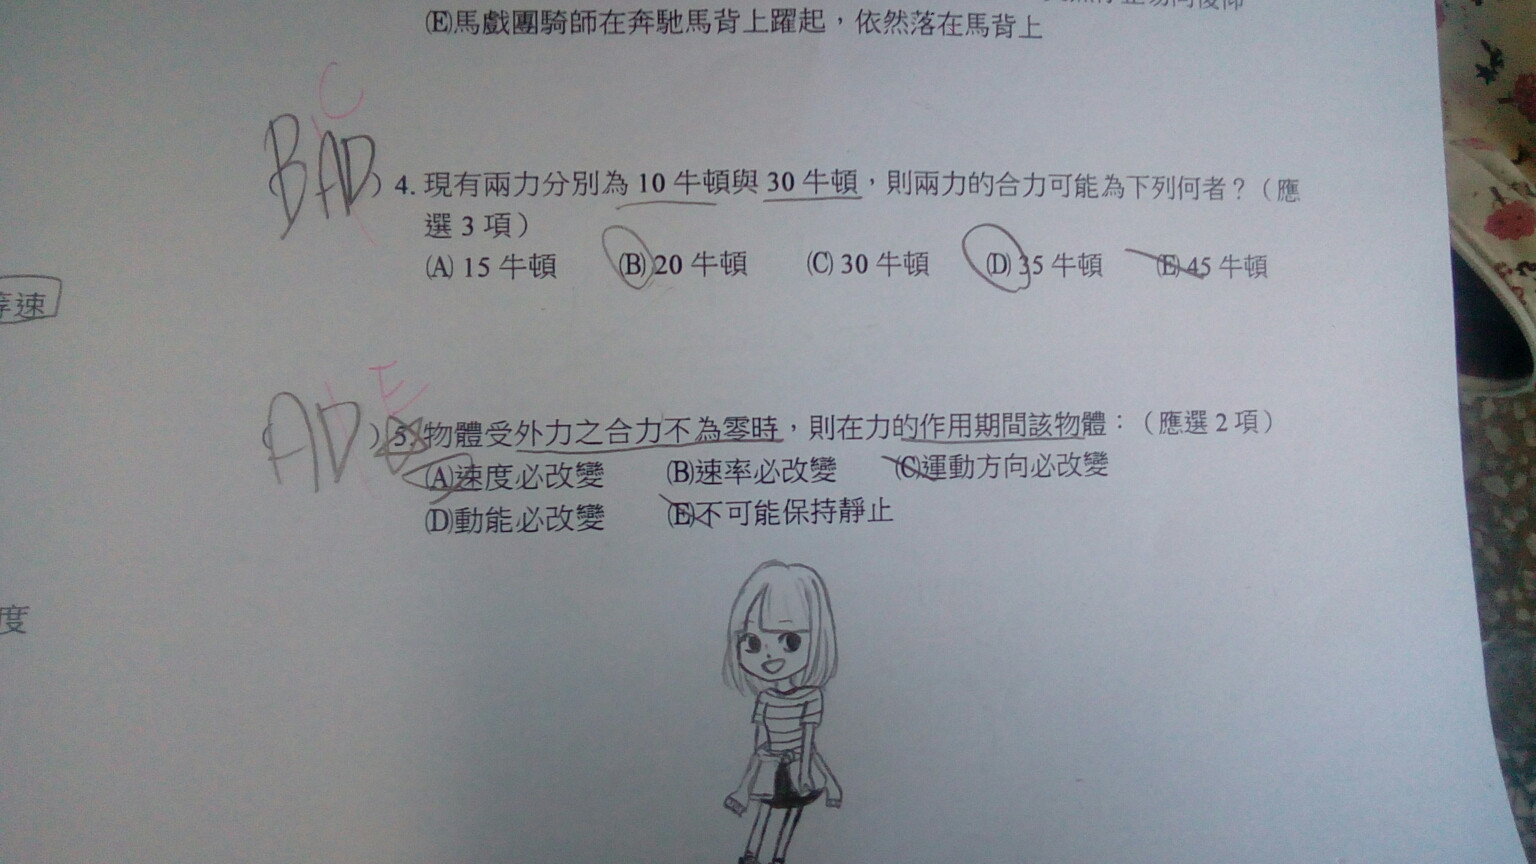 (E)馬戲團騎師在奔馳馬背上躍起，依然落在馬背上
C
BAD
)4. 現有兩力分別為 10 牛頓與 30 牛頓，則兩力的合力可能為下列何者？（應
選 3 項）
(A) 15 牛頓 (B) 20 牛頓 (C) 30 牛頓 (D) 35 牛頓 (E) 45 牛頓
等速
E
AD
( )5. 物體受外力之合力不為零時，則在力的作用期間該物體：（應選 2 項）
(A)速度必改變 (B)速率必改變 (C)運動方向必改變
(D)動能必改變 (E)不可能保持靜止
度